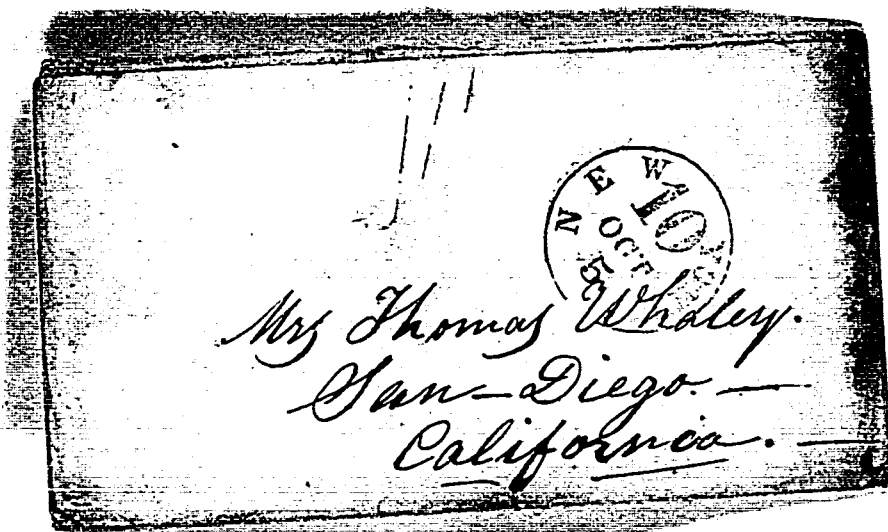 NEW
10
OCT
5
Mrs Thomas Whaley.
San-Diego. —
California. —